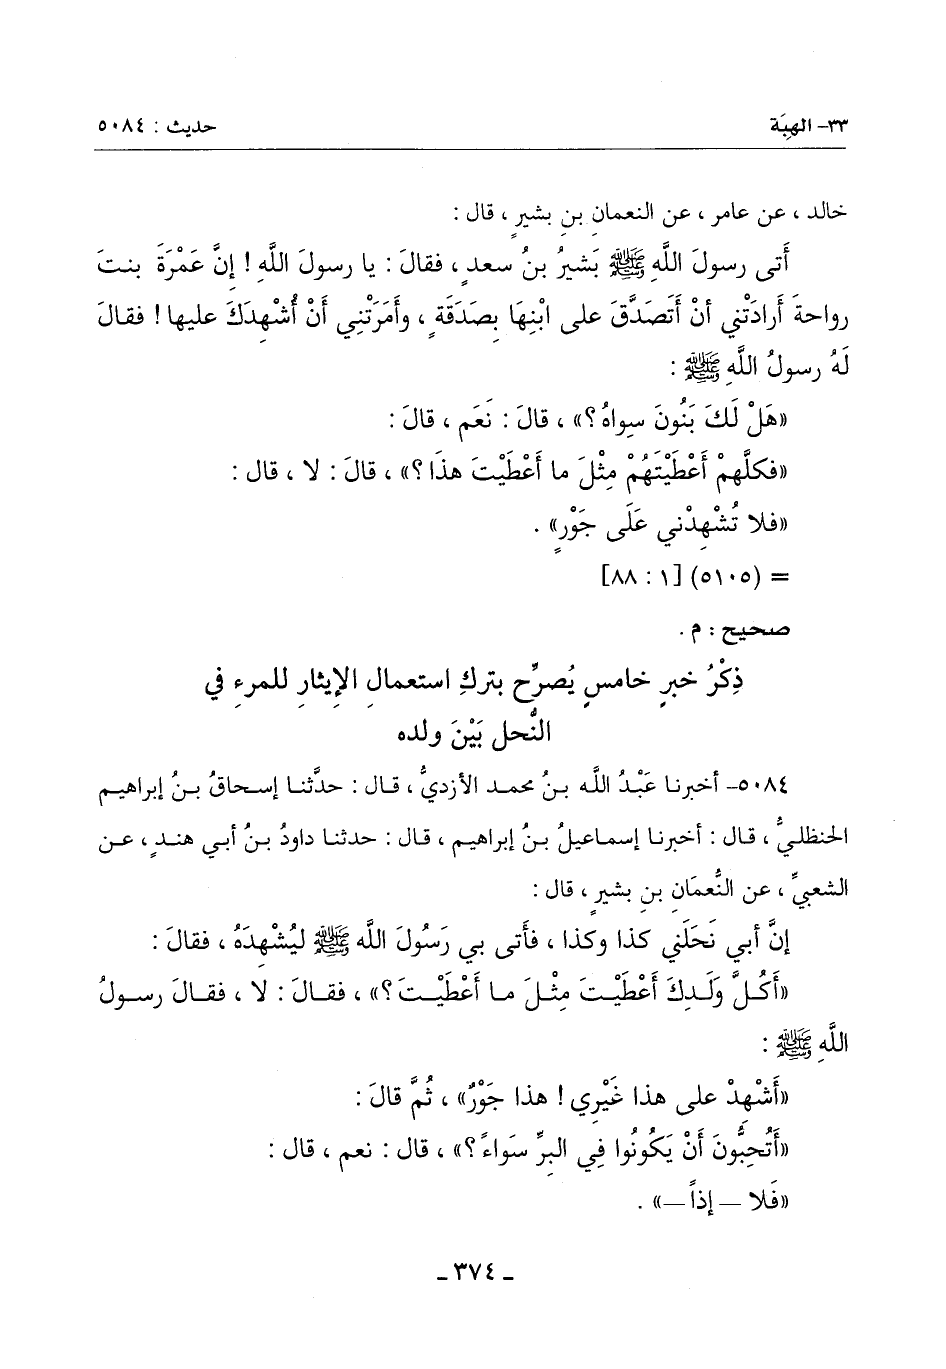 ٣٣- الهِبَة حديث : ٥٠٨٤
خالد ، عن عامر ، عن النعمانِ بنِ بشيرٍ ، قال :
أَتى رسولَ اللَّهِ ﷺ بَشيرُ بنُ سعدٍ ، فقالَ : يا رسولَ اللَّهِ ! إنَّ عَمْرَةَ بنتَ
رواحةَ أرادَتْني أنْ أَتَصَدَّقَ على ابْنِهَا بِصَدَقَةٍ ، وأَمَرَتْنِي أَنْ أُشْهِدَكَ عليها ! فقالَ
لَهُ رسولُ اللَّهِ ﷺ :
«هَلْ لَكَ بَنُونَ سِواهُ ؟» ، قالَ : نَعَم ، قالَ :
«فكلَّهمْ أَعْطَيْتَهُمْ مِثْلَ ما أَعْطَيْتَ هذَا ؟» ، قالَ : لا ، قال :
«فلا تُشْهِدْني عَلَى جَوْرٍ» .
= (٥١٠٥) [١ : ٨٨]
صحيح : م .
ذِكْرُ خبرٍ خامسٍ يُصرِّح بتركِ استعمالِ الإيثارِ للمرءِ في
النُّحل بَيْنَ ولده
٥٠٨٤- أخبرنا عَبْدُ اللَّه بنُ محمد الأزديُّ ، قال : حدَّثنا إسحاقُ بنُ إبراهيم
الحنظليُّ ، قال : أخبرنا إسماعيلُ بنُ إبراهيم ، قال : حدثنا داودُ بنُ أبي هندٍ ، عن
الشعبيِّ ، عن النُّعمَانِ بنِ بشيرٍ ، قال :
إنَّ أبي نَحَلَني كذا وكذا ، فأَتى بي رَسُولَ اللَّه ﷺ ليُشْهِدَهُ ، فقالَ :
«أَكُلَّ وَلَدِكَ أَعْطَيْتَ مِثْلَ ما أَعْطَيْتَ ؟» ، فقالَ : لا ، فقالَ رسولُ
اللَّهِ ﷺ :
«أَشْهِدْ على هذا غَيْرِي ! هذا جَوْرٌ» ، ثُمَّ قالَ :
«أَتُحِبُّونَ أَنْ يَكُونُوا فِي البرِّ سَواءً ؟» ، قال : نعم ، قال :
«فَلا — إذاً —» .
- ٣٧٤ -